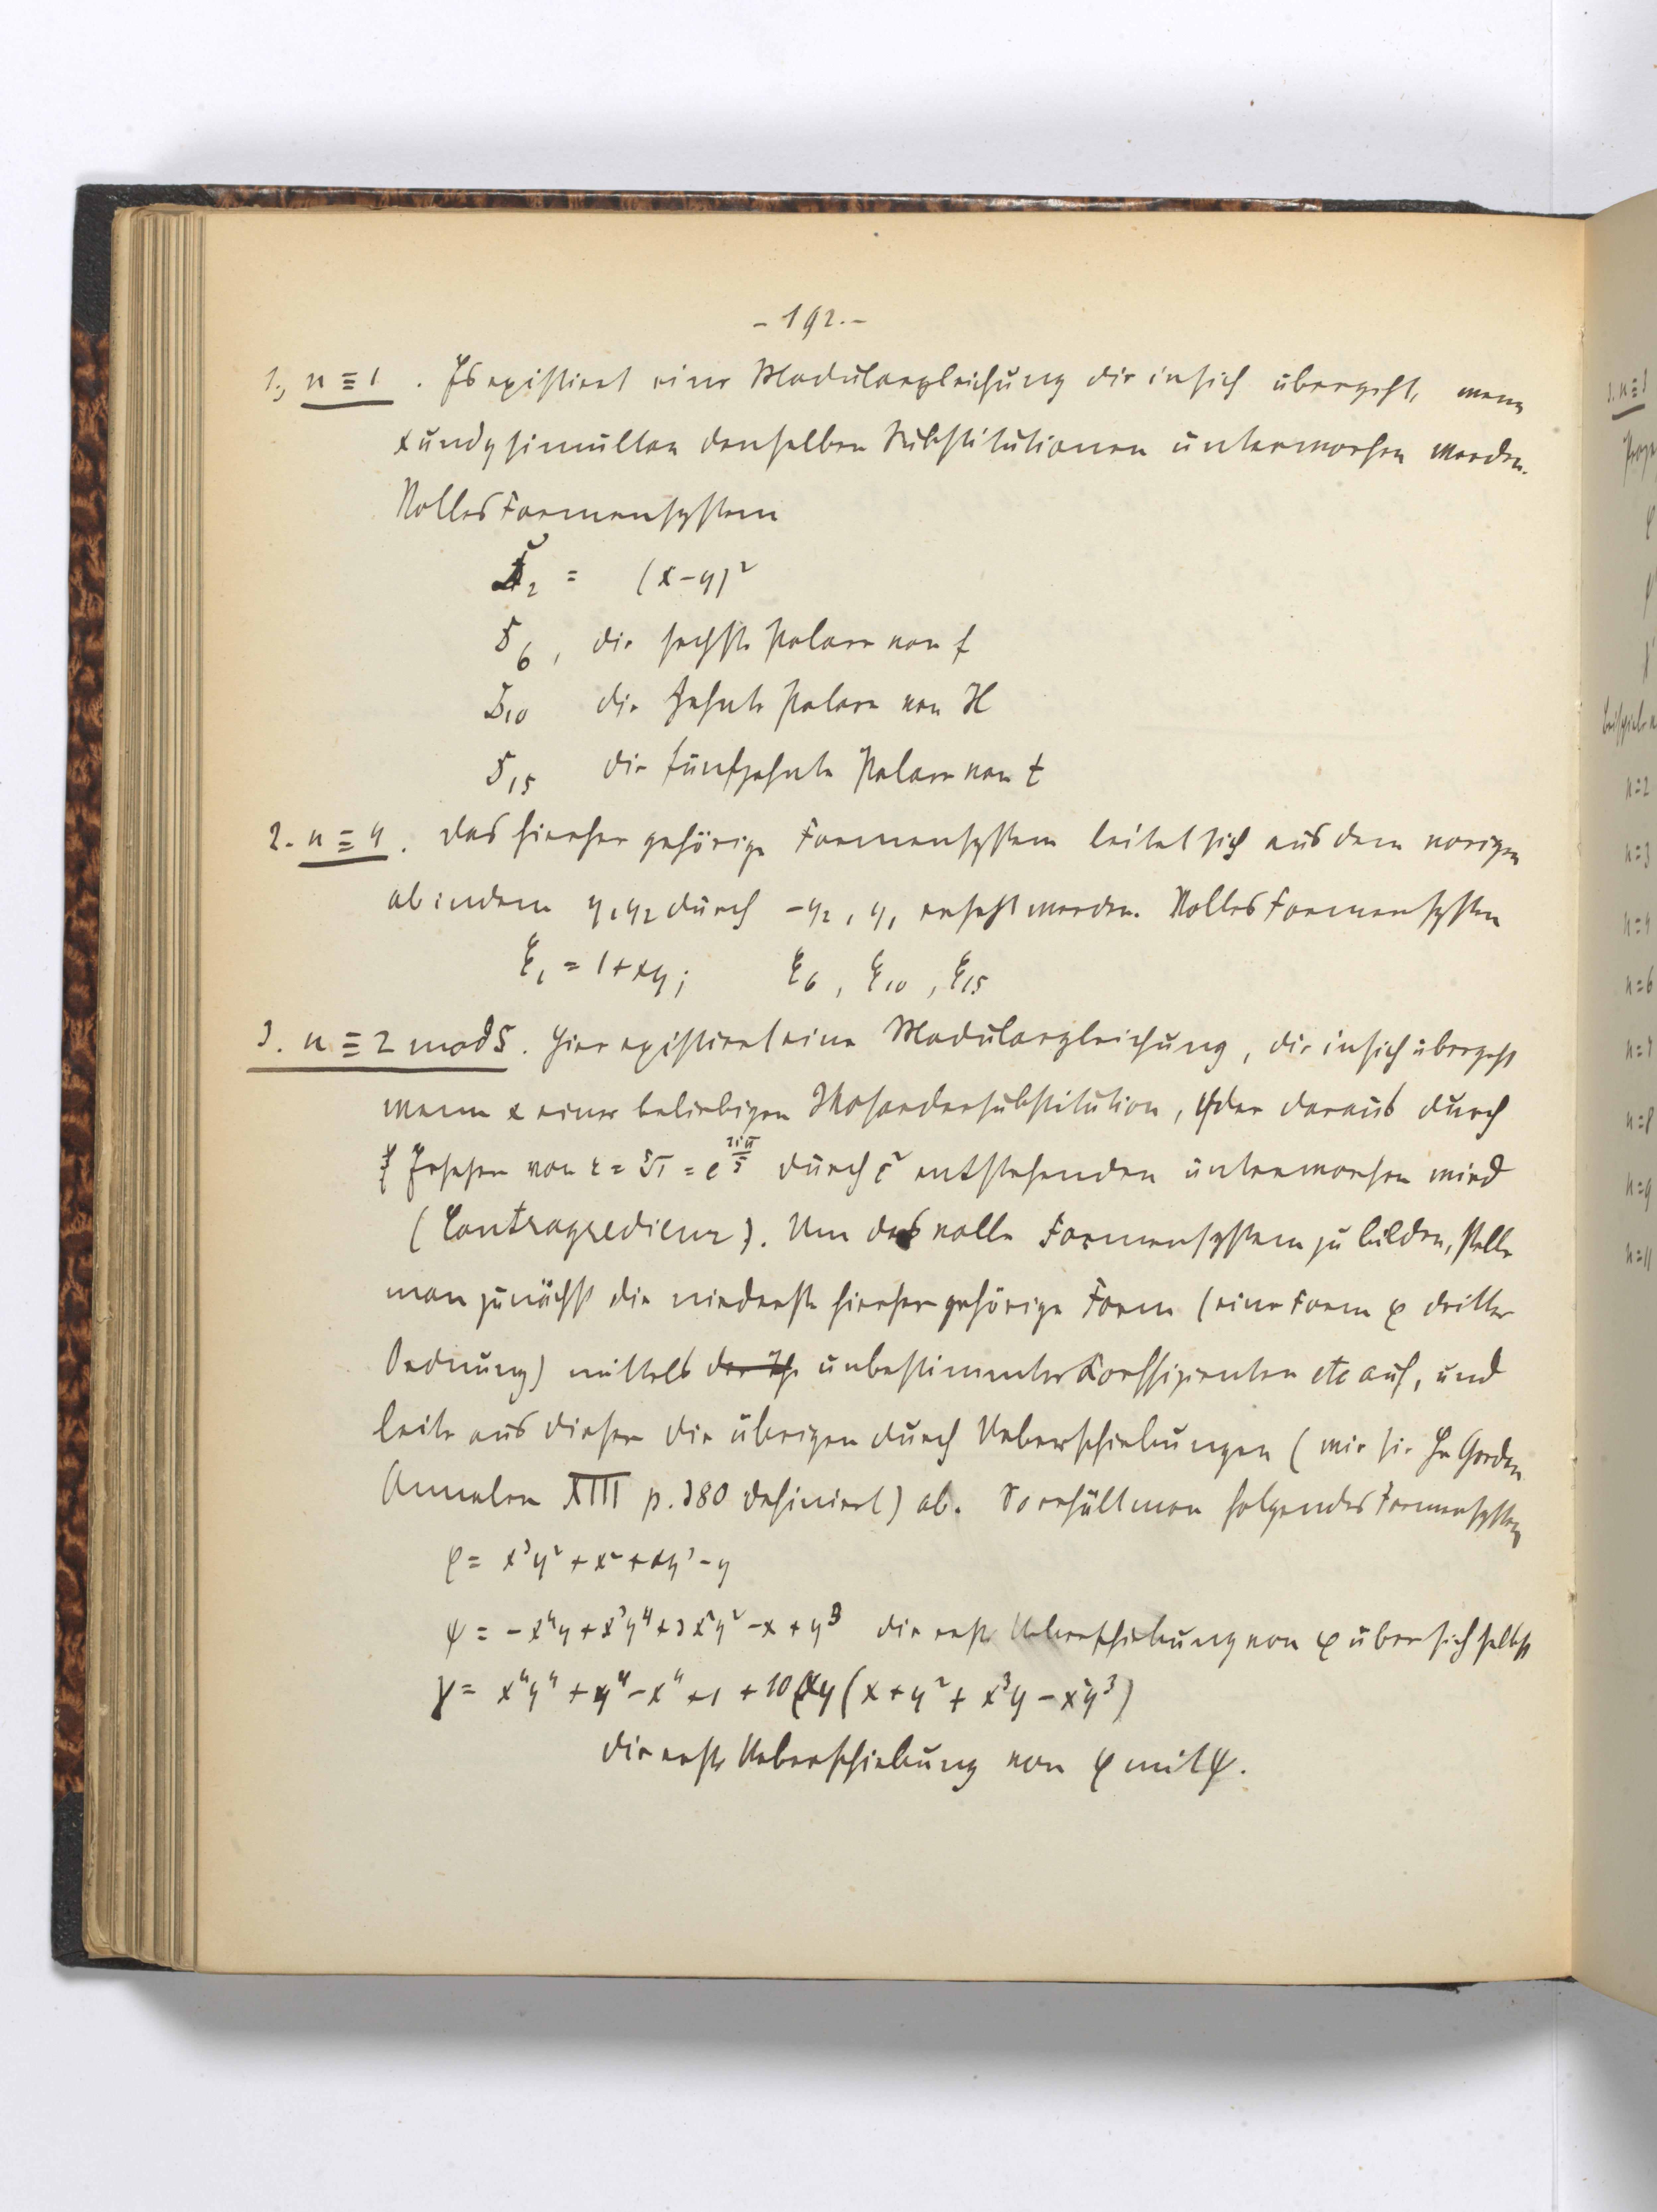 - 192. -
1., n ≡ 1 . Es existiert eine Modulargleichung die in sich übergeht, wenn
x und y simultan denselben Substitutionen unterworfen werden.
Volles Formensystem
₂ = (x-y)²
₆, die sechste Polare von f
₁₀ die zehnte Polare von H
₁₅ die fünfzehnte Polare von t
2. n ≡ 4. Das hierher gehörige Formensystem leitet sich aus dem vorigen
ab indem y₁ y₂ durch -y₂, y₁ ersetzt werden. Volles Formensystem
ξ₁ = 1+xy; ξ₆, ξ₁₀, ξ₁₅
3. n ≡ 2 mod 5. Hier existiert eine Modulargleichung, die in sich übergeht
wenn x einer beliebigen Ikosaedersubstitution, y der daraus durch
Ersetzen von ε = ⁵√1 = e^{2iπ/5} durch ε² entstehenden unterworfen wird
(Contragredienz). Um das volle Formensystem zu bilden, stelle
man zunächst die niederste hierher gehörige Form (eine Form φ dritter
Ordnung) mittels unbestimmter Koeffizienten etc auf, und
leite aus dieser die übrigen durch Ueberschiebungen (wie sie Hr Gordan
Annalen XIII p. 380 definiert) ab. So erhält man folgendes Formensystem
φ = x³y² + x² + xy³ - y
ψ = -x⁴y + x³y⁴ + 3x²y² - x + y³ die erste Ueberschiebung von φ über sich selbst
χ = x⁴y⁴ + y⁴ - x⁴ + 1 + 10xy(x + y² + x³y - x²y³)
die erste Ueberschiebung von φ mit ψ.
3. n ≡ 3
n=2
n=3
n=4
n=6
n=7
n=8
n=9
n=11